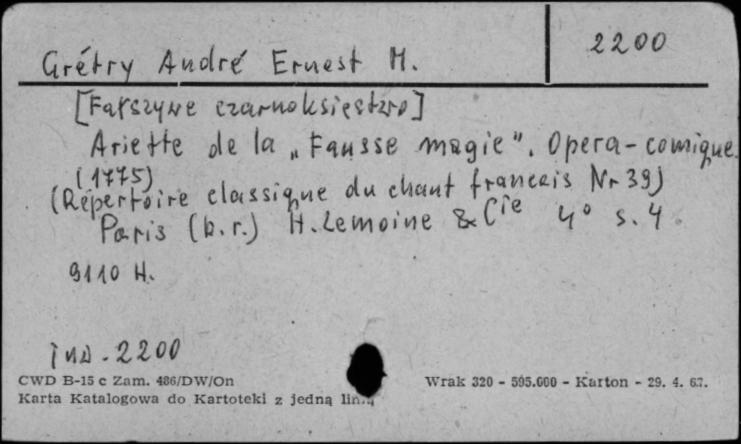 Grétry André Ernest M.
2200
[Fałszywe czarnoksięstwo]
Ariette de la „Fausse magie". Opera-comique.
(1775)
(Répertoire classique du chant francais Nr 39)
Paris (b.r.) H. Lemoine & Cie 4° s. 4.
9110 H.
inw. 2200
CWD B-15 c Zam. 486/DW/On
Wrak 320 - 595.000 - Karton - 29. 4. 67.
Karta Katalogowa do Kartoteki z jedną linią